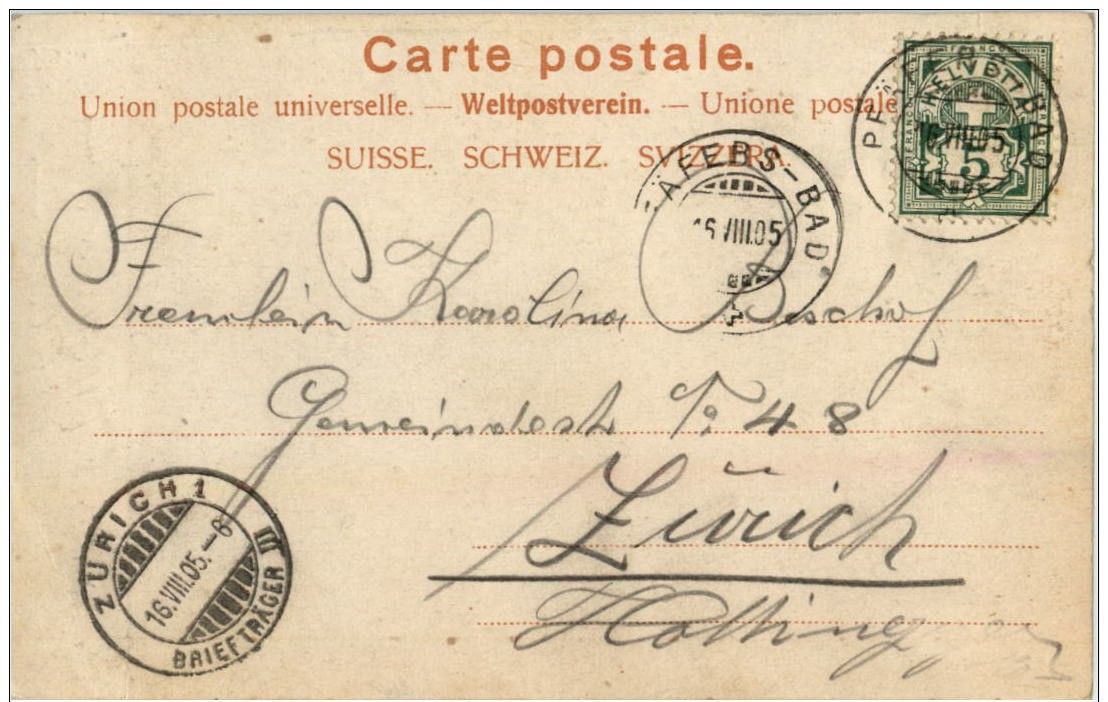 Carte postale.
Union postale universelle. — Weltpostverein. — Unione postale
SUISSE. SCHWEIZ. SVIZZERA.
HELVETIA
FRANCO
5
BAD
16.VIII.05
ÄFERS-BAD
16.VIII.05
Fraulein Karolina
Gemeindestr No 48
Zürich
Hottingen
ZÜRICH 1 III
16.VIII.05.-8
BRIEFTRÄGER